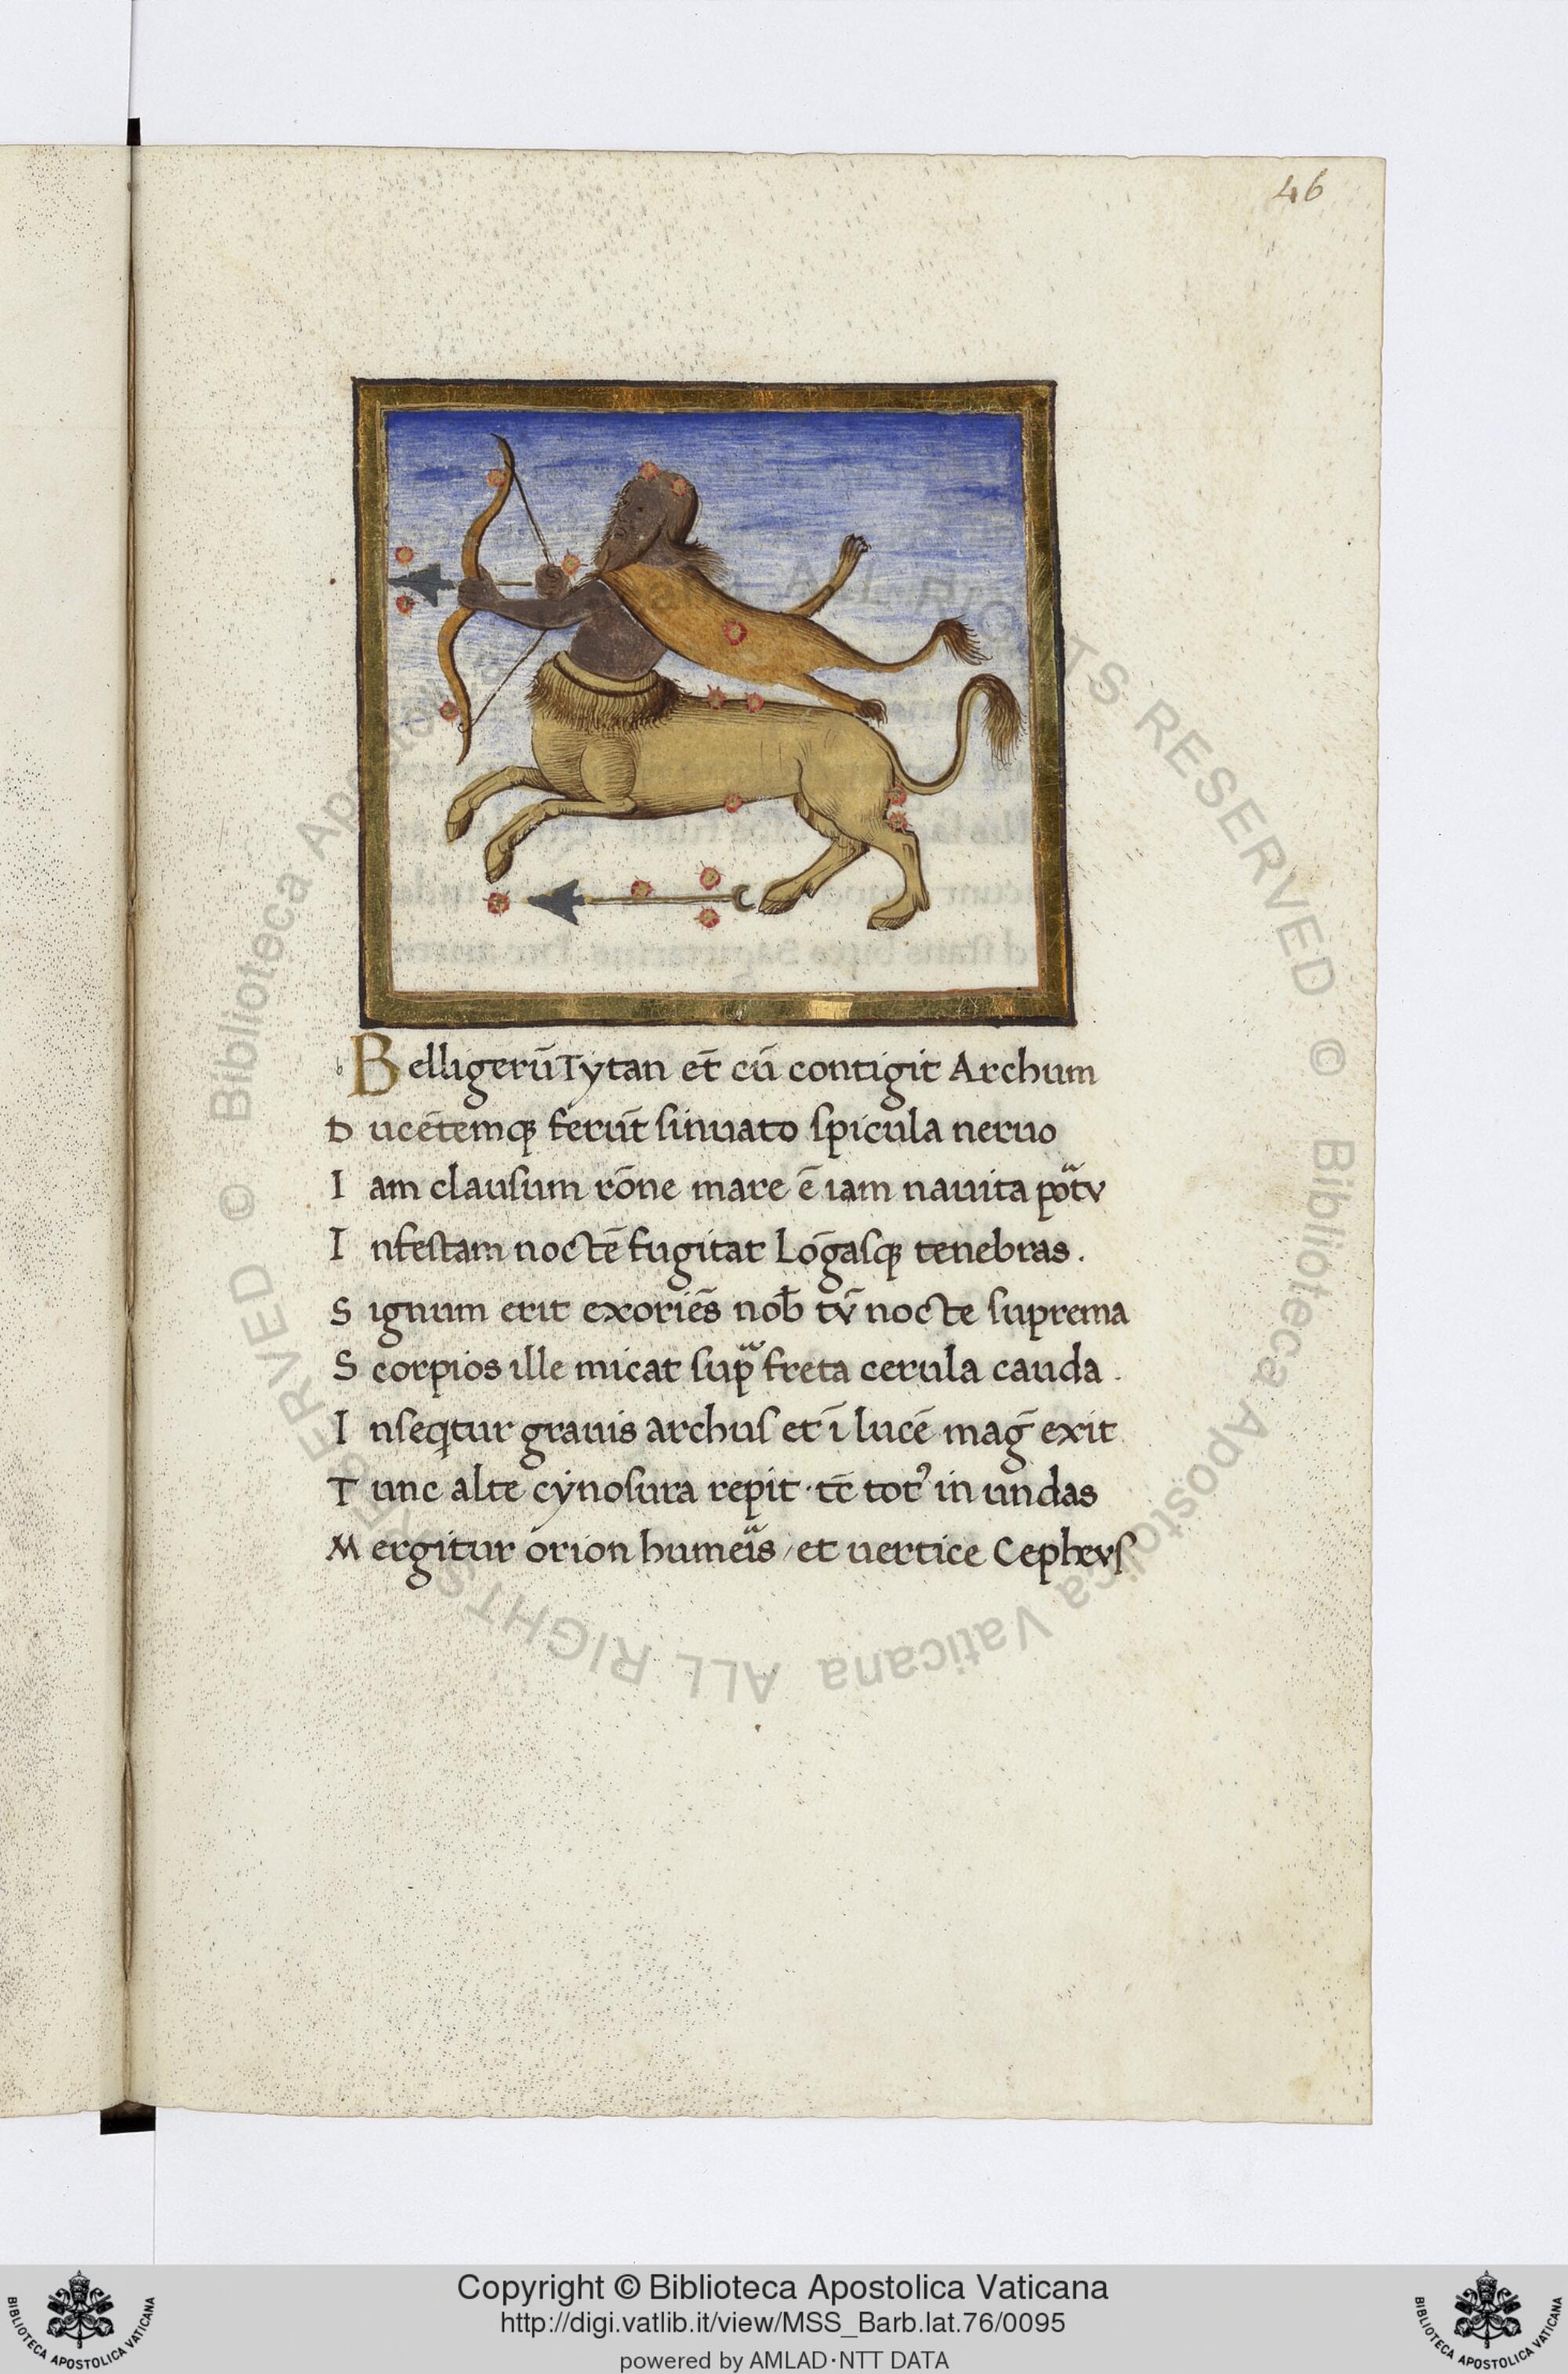 46
b Belligerū Tytan et̄ cū contigit Archum
Ducētemqꝫ ferūt sinuato spicula neruo
Iam clausum rōne mare ē iam nauita
Infestam noctē fugitat Lōgasqꝫ tenebras.
Signum erit exoriēs nob̄ tv̄ nocte suprema
Scorpios ille micat sup freta cerula cauda.
Inseqtur grauis archus et ī lucē mag̅ exit
Tunc alte cẏnosura repit · tc̄ totꝰ in undas
Mergitur orion humeis / et uertice Cepheus
© Biblioteca Apostolica Vaticana ALL RIGHTS RESERVED © Biblioteca Apostolica Vaticana ALL RIGHTS RESERVED
Copyright © Biblioteca Apostolica Vaticana
http://digi.vatlib.it/view/MSS_Barb.lat.76/0095
powered by AMLAD·NTT DATA
BIBLIOTECA APOSTOLICA VATICANA
BIBLIOTECA APOSTOLICA VATICANA